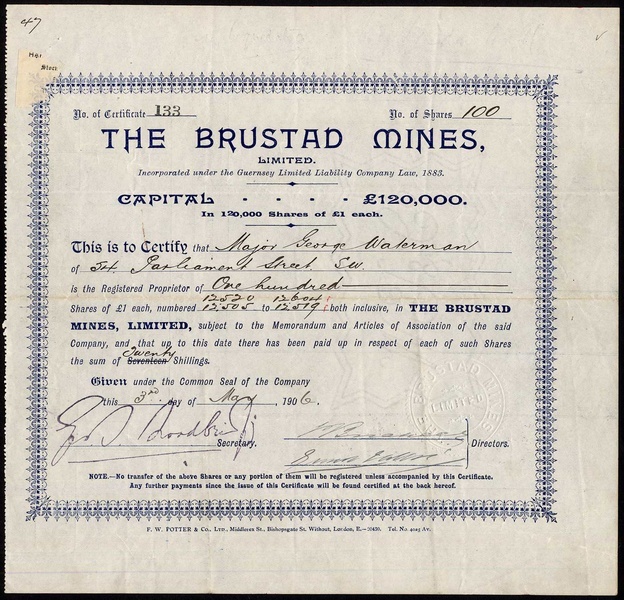 47
Her
Stoc
No. of Certificate 133 No. of Shares 100
THE BRUSTAD MINES,
LIMITED.
Incorporated under the Guernsey Limited Liability Company Law, 1883.
CAPITAL · · · · £120,000.
In 120,000 Shares of £1 each.
This is to Certify that Major George Waterman
of 54. Parliament Street. S.W.
is the Registered Proprietor of One hundred
12520 12604
Shares of £1 each, numbered 12505 to 12519 both inclusive, in THE BRUSTAD
MINES, LIMITED, subject to the Memorandum and Articles of Association of the said
Company, and that up to this date there has been paid up in respect of each of such Shares
Twenty
the sum of Seventeen Shillings.
Given under the Common Seal of the Company
this 3rd day of May 1906.
Secretary. Directors.
BRUSTAD MINES
LIMITED
NOTE.—No transfer of the above Shares or any portion of them will be registered unless accompanied by this Certificate.
Any further payments since the issue of this Certificate will be found certified at the back hereof.
F. W. POTTER & Co., LTD., Middlesex St., Bishopsgate St. Without, London, E.—10430. Tel. No. 4025 Av.